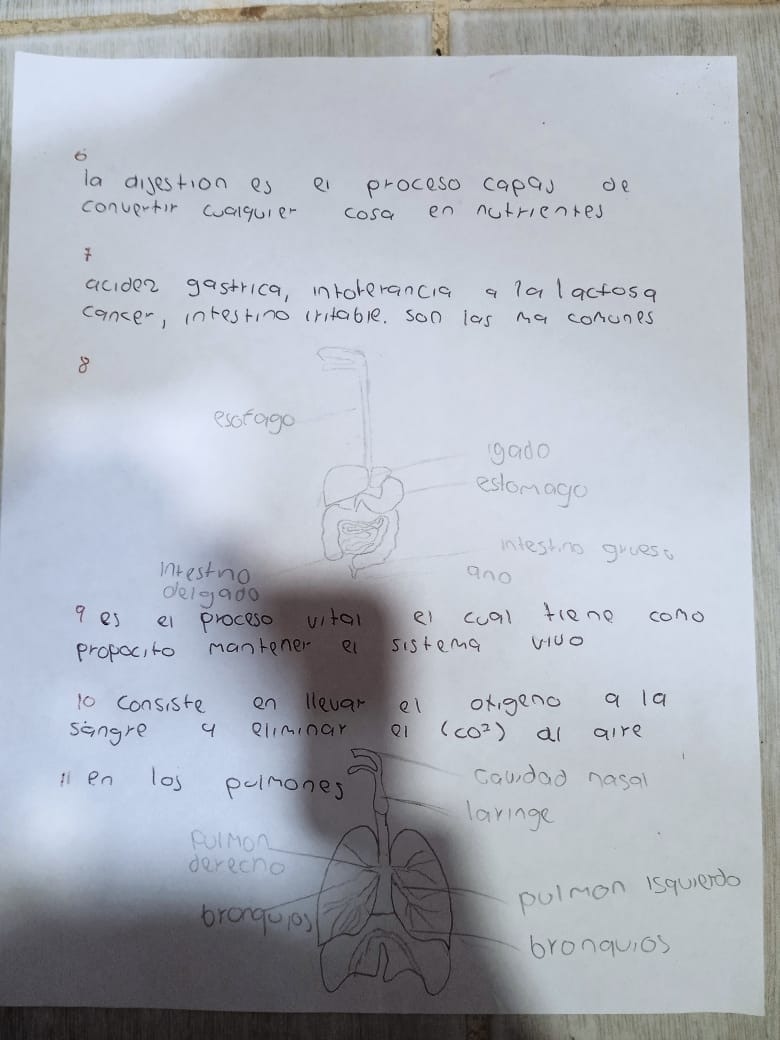 6
la digestion es el proceso capas de
convertir cualquier cosa en nutrientes
7
acidez gastrica, intolerancia a la lactosa
cancer, intestino irritable. son las ma comunes
8
esofago
igado
estomago
intestino grueso
ano
intestno
delgado
9 es el proceso vital el cual tiene como
propocito mantener el sistema vivo
10 consiste en llevar el oxigeno a la
sangre y eliminar el (co²) al aire
11 en los pulmones
cavidad nasal
laringe
pulmon
derecho
pulmon isquierdo
bronquios
bronquios